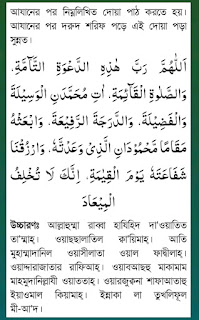 আযানের পর নিম্নলিখিত দোয়া পাঠ করতে হয়।
আযানের পর দরুদ শরিফ পড়ে এই দোয়া পড়া
সুন্নত।
اَللّٰهُمَّ رَبَّ هٰذِهِ الدَّعْوَةِ التَّآمَّةِ.
وَالصَّلٰوةِ الْقَآئِمَةِ. اٰتِ مُحَمَّدَنِ الْوَسِيْلَةَ
وَالْفَضِيْلَةَ. وَالدَّرَجَةَ الرَّفِيْعَةَ. وَابْعَثْهُ
مَقَامًا مَّحْمُوْدَانِ الَّذِىْ وَعَدْتَّهٗ. وَارْزُقْنَا
شَفَاعَتَهٗ يَوْمَ الْقِيٰمَةِ. اِنَّكَ لَا تُخْلِفُ
الْمِيْعَادَ
উচ্চারণঃ আল্লাহুম্মা রাব্বা হাযিহিদ দা'ওয়াতিত
তা'ম্মাহ্। ওয়াছছালাতিল ক্বায়িমাহ্। আতি
মুহাম্মাদানিল ওয়াসীলাতা ওয়াল ফাদ্বীলাহ্।
ওয়াদ্দারাজাতার রাফিআহ্। ওয়াবআছহু মাকামাম
মাহমুদানিল্লাযী ওয়াতাহ্। ওয়ারজুকনা শাফাআতাহু
ইয়াওমাল কিয়ামাহ্। ইন্নাকা লা তুখলিফূল
মী-আ'দ।